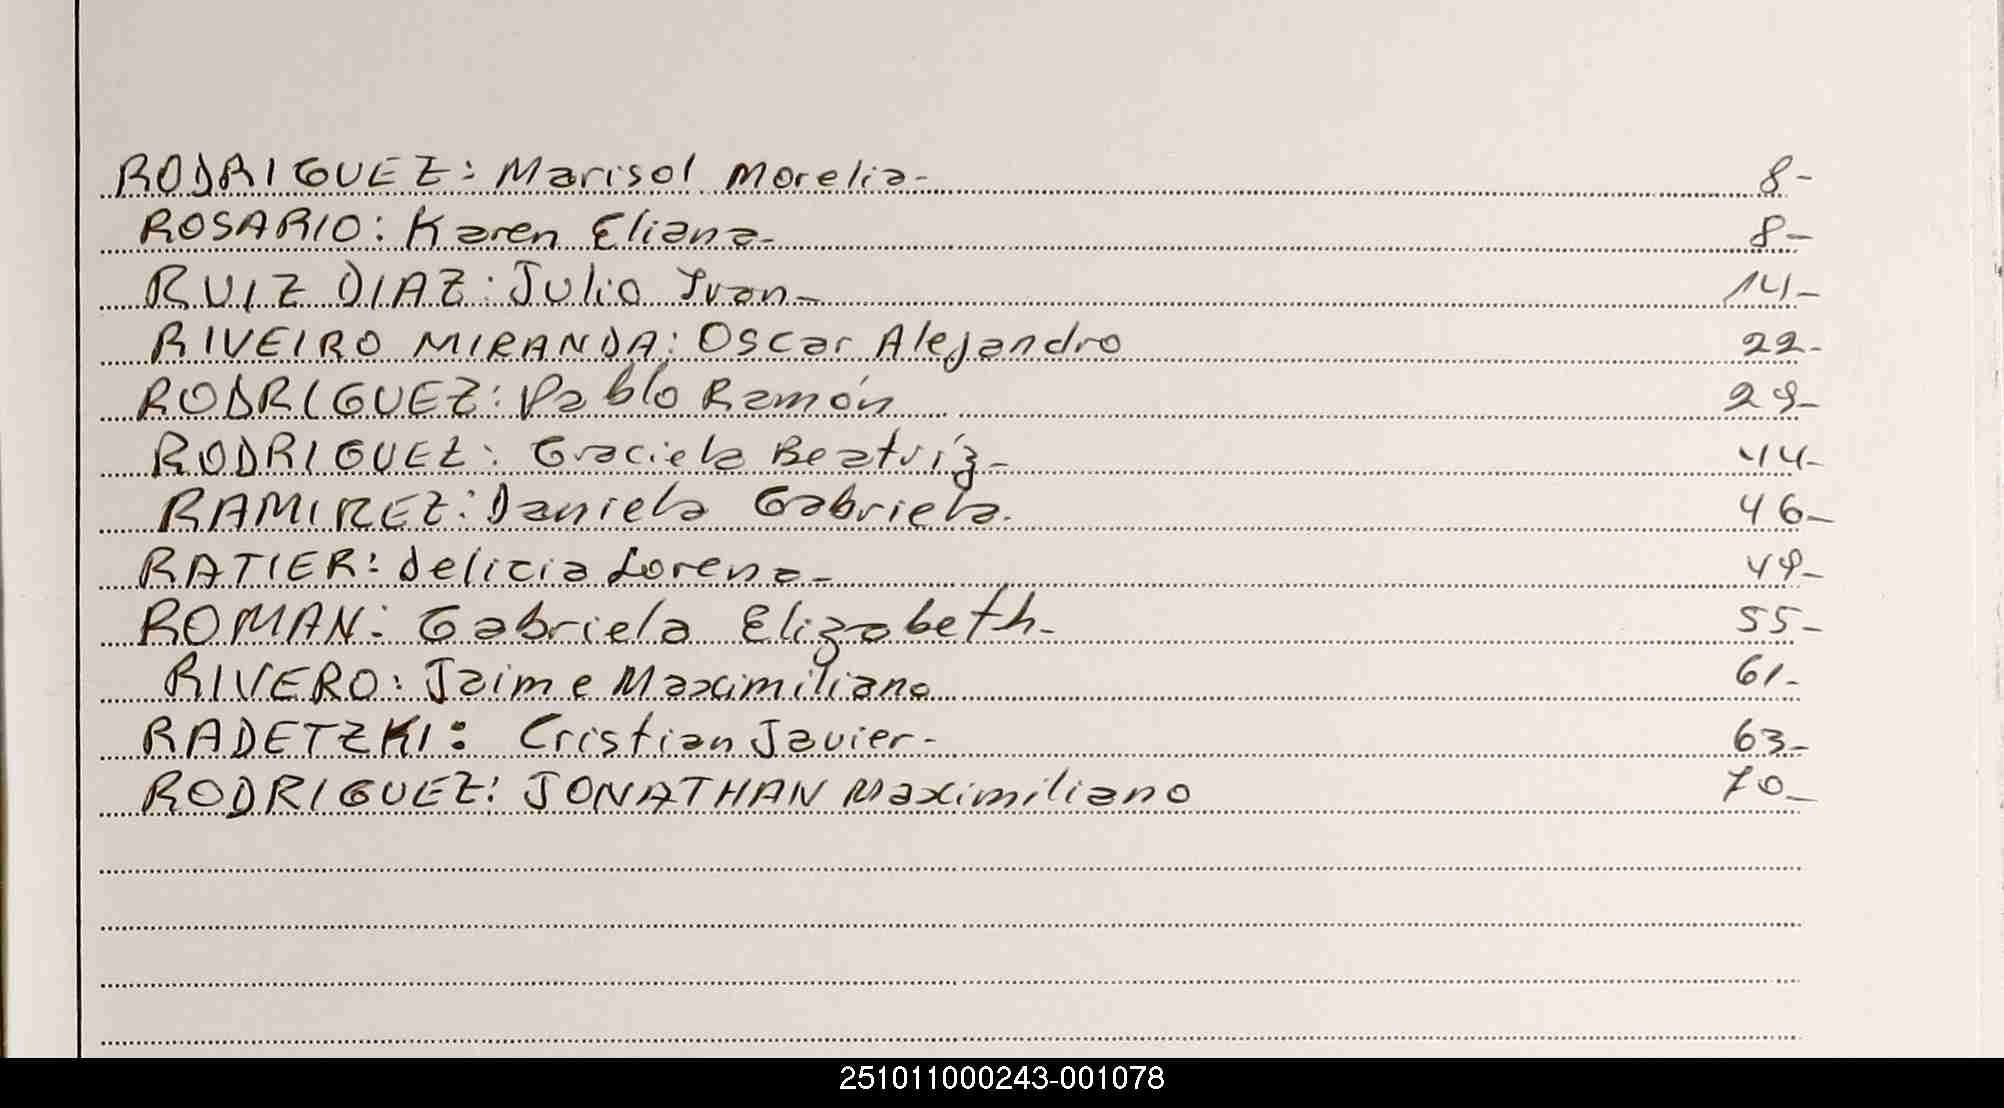 RODRIGUEZ: Marisol Morelia- 8-
ROSARIO: Karen Eliana- 8-
RUIZ DIAZ: Julio Ivan- 14-
RIVEIRO MIRANDA: Oscar Alejandro 22-
RODRIGUEZ: Pablo Ramón 29-
RODRIGUEZ: Graciela Beatríz- 44-
RAMIREZ: Daniela Gabriela. 46-
RATIER: Delicia Lorena- 49-
ROMAN: Gabriela Elizabeth- 55-
RIVERO: Jaime Maximiliano 61-
RADETZKI: Cristian Javier- 63-
RODRIGUEZ: JONATHAN Maximiliano 70-
251011000243-001078